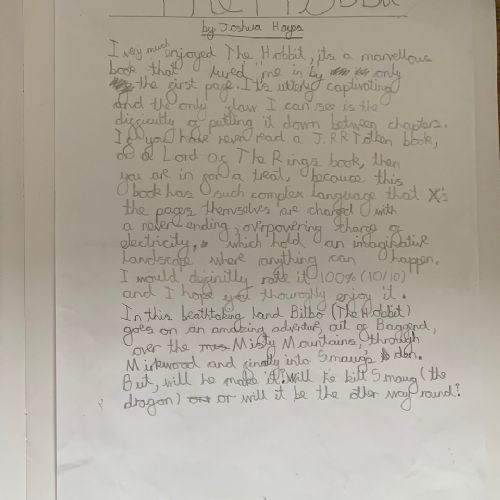 The Hobbit
by Joshua Hayes
I very much enjoyed The Hobbit, it's a marvellous
book that lured me in by only
the first page. It's utterly captivating
and the only flaw I can see is the
difficulty of putting it down between chapters.
If you have never read a J.R.R Tolkien book,
or a Lord Of The Rings book, then
you are in for a treat, because this
book has such complex language that
the pages themselves are charged with
a never ending, overpowering charge of
electricity, which hold an imaginative
landscape where anything can happen.
I would definitly rate it 100% (10/10)
and I hope you thouroghly enjoy it.
In this beathtaking land Bilbo (The Hobbit)
goes on an amazing adventure, out of Bagend,
over the Misty Mountains, through
Mirkwood and finally into Smaug's den.
But, will he make it? Will he kill Smaug (the
dragon) or will it be the other way round?